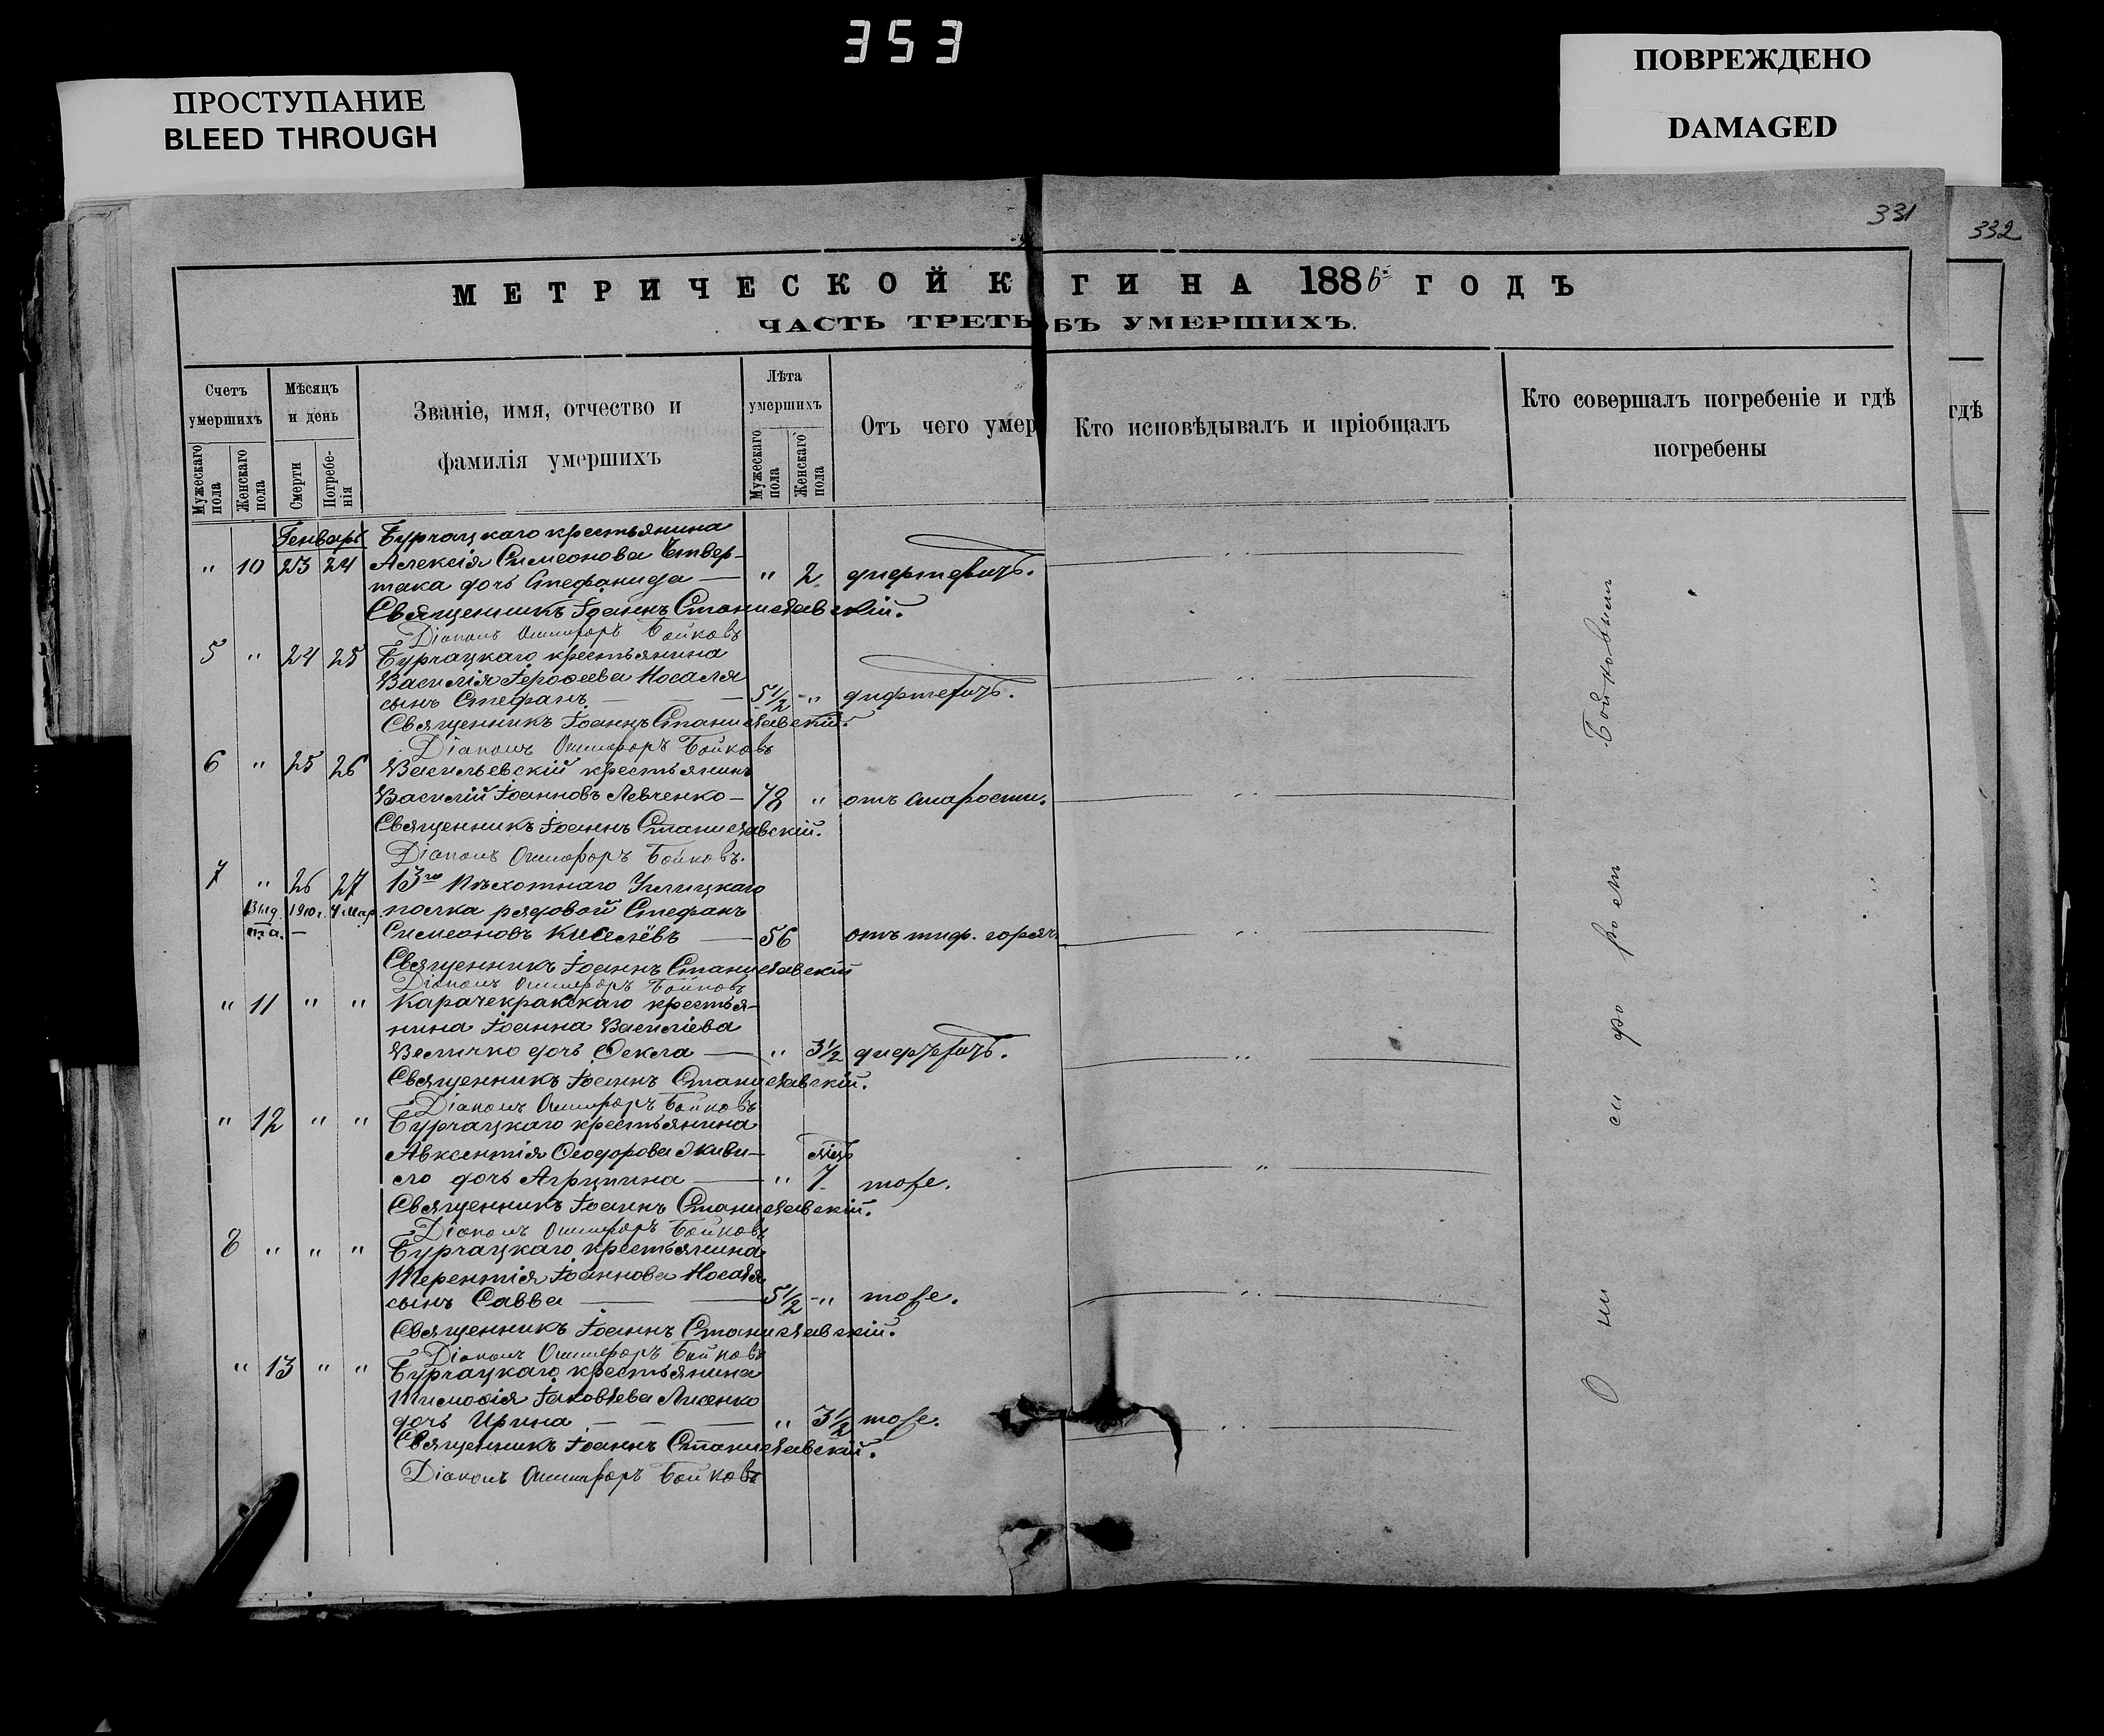 353
ПРОСТУПАНИЕ
BLEED THROUGH
ПОВРЕЖДЕНО
DAMAGED
331
332
МЕТРИЧЕСКОЙ К ГИ НА 1886й ГОДЪ
ЧАСТЬ ТРЕТЬ ОБЪ УМЕРШИХЪ.
Счетъ умершихъ
Мужескаго пола
Женскаго пола
Мѣсяцъ и день
Смерти
Погребенія
Званіе, имя, отчество и
фамилія умершихъ
Лѣта умершихъ
Мужескаго пола
Женскаго пола
Отъ чего умер
Кто исповѣдывалъ и пріобщалъ
Кто совершалъ погребеніе и гдѣ
погребены
гдѣ
Генварь Бурчацкаго крестьянина
" 10 23 24 Алексія Симеонова Четвер-
така дочь Стефанида — " 2 дифтеритъ.
Священникъ Іоаннъ Станиславскій.
Діаконъ Онисифоръ Бойковъ
5 " 24 25 Бурчацкаго крестьянина
Василія Іерофеева Носаля
сынъ Стефанъ — 5 1/2 " дифтеритъ.
Священникъ Іоаннъ Станиславскій.
Діаконъ Онисифоръ Бойковъ
6 " 25 26 Васильевскій крестьянинъ
Василій Іоанновъ Левченко — 78 " отъ старости.
Священникъ Іоаннъ Станиславскій.
Діаконъ Онисифоръ Бойковъ.
7 " 26 27 13го Пѣхотнаго
Выд. 1910 г. 4 Мар. полка рядовой Стефанъ
Симеоновъ Киселёвъ — 56 отъ тиф. горяч.
Священникъ Іоаннъ Станиславскій
Діаконъ Онисифоръ Бойковъ
" 11 " " Карачекракскаго крестья-
нина Іоанна Василіева
Величко дочь Ѳекла — " 3 1/2 дифтеритъ.
Священникъ Іоаннъ Станиславскій.
Діаконъ Онисифоръ Бойковъ
" 12 " " Бурчацкаго крестьянина
Авксентія Ѳеодорова мѣц.
дочь Агрипина — " 7 тоже.
Священникъ Іоаннъ Станиславскій.
Діаконъ Онисифоръ Бойковъ
8 " " " Бурчацкаго крестьянина
Терентія Іоаннова Носаля
сынъ Савва — 5 1/2 " тоже.
Священникъ Іоаннъ Станиславскій.
Діаконъ Онисифоръ Бойковъ
" 13 " " Бурчацкаго крестьянина
Тимоѳія Іаковлева Лисенко
дочь Ирина — " 3 1/2 тоже.
Священникъ Іоаннъ Станиславскій.
Діаконъ Онисифоръ Бойковъ
Онисифоромъ Бойковымъ